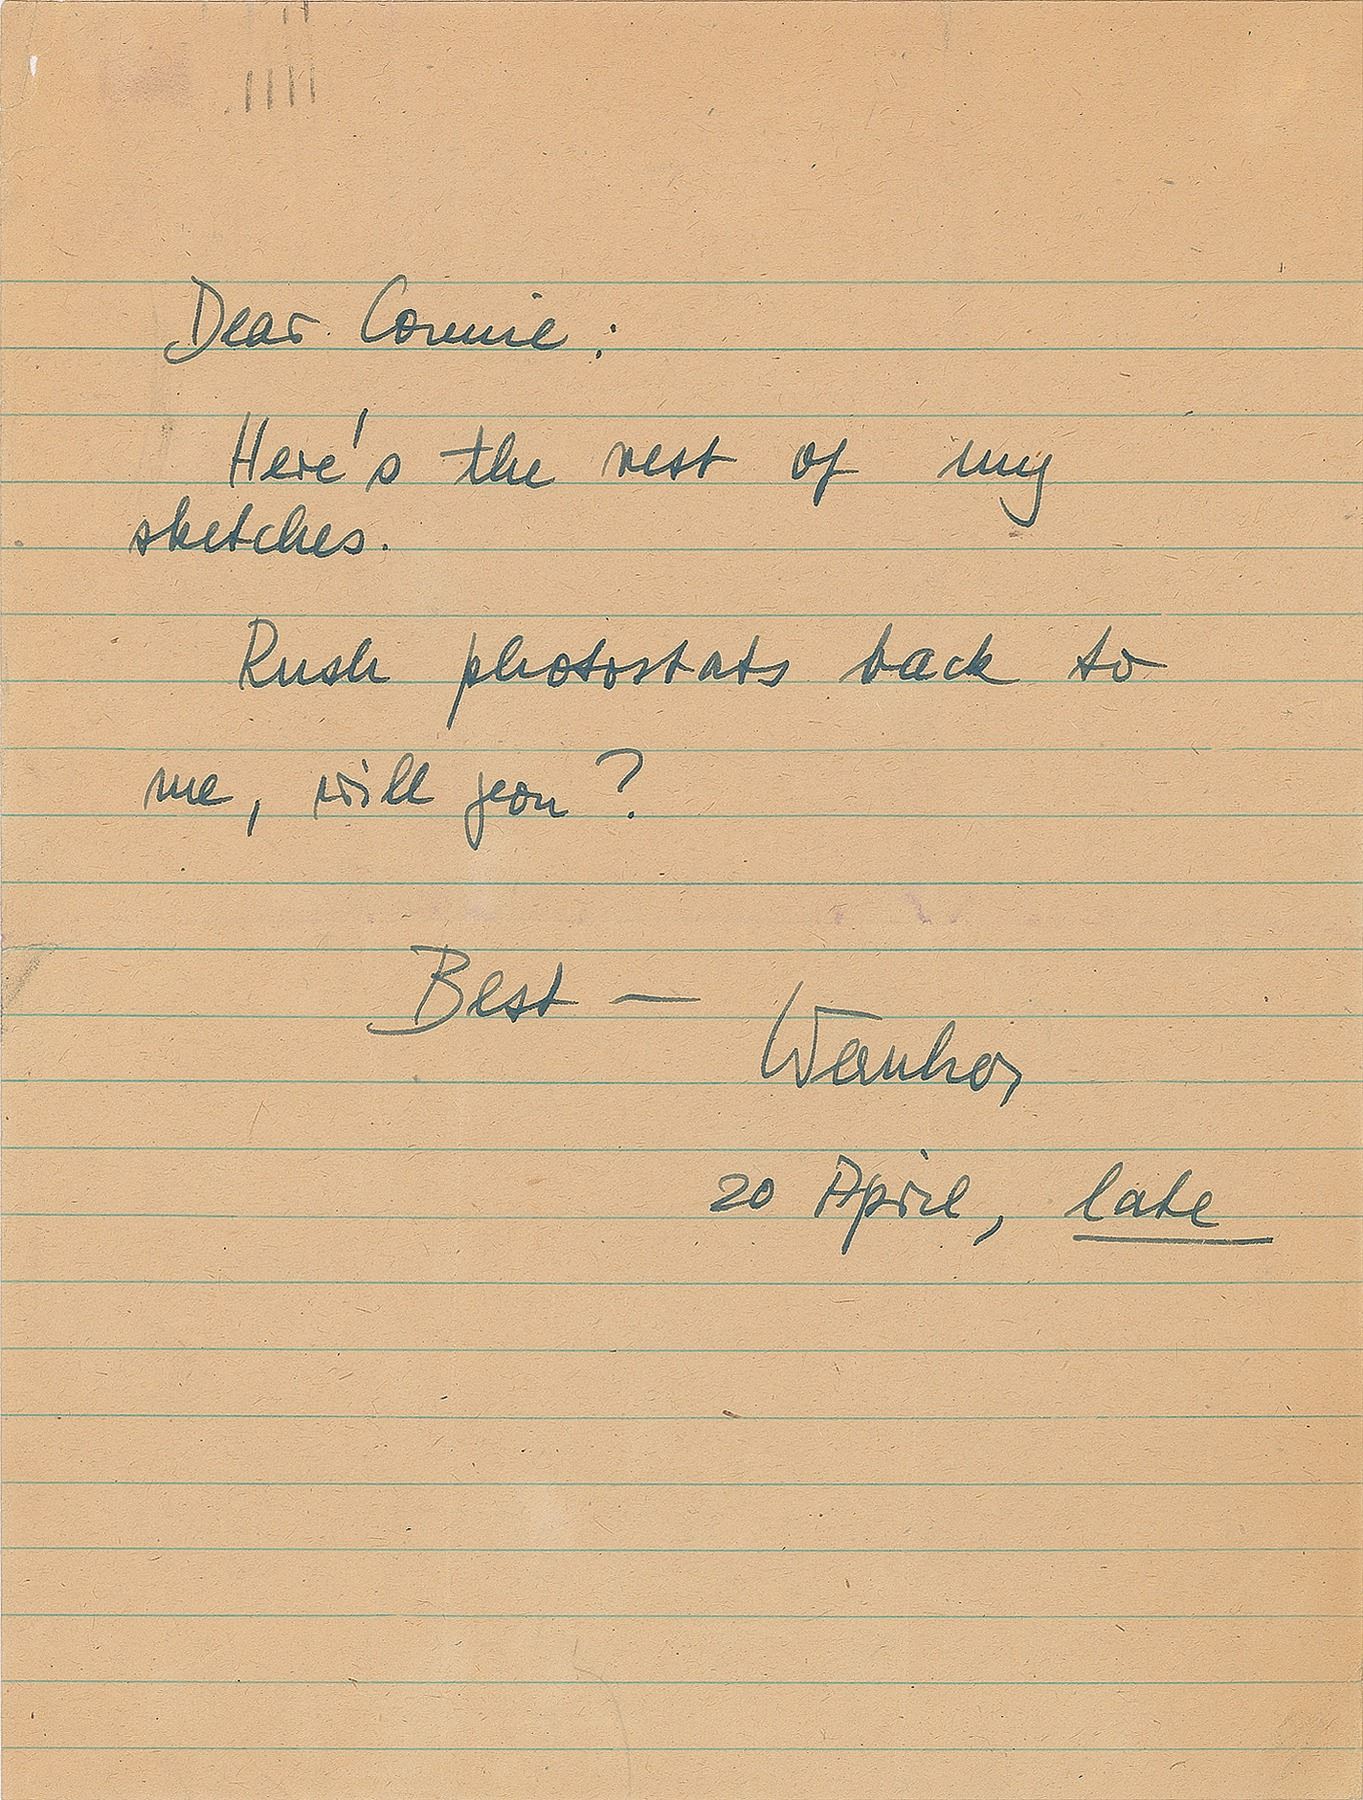 Dear Connie:
Here's the rest of my
sketches.
Rush photostats back to
me, will you?
Best —
20 April, late